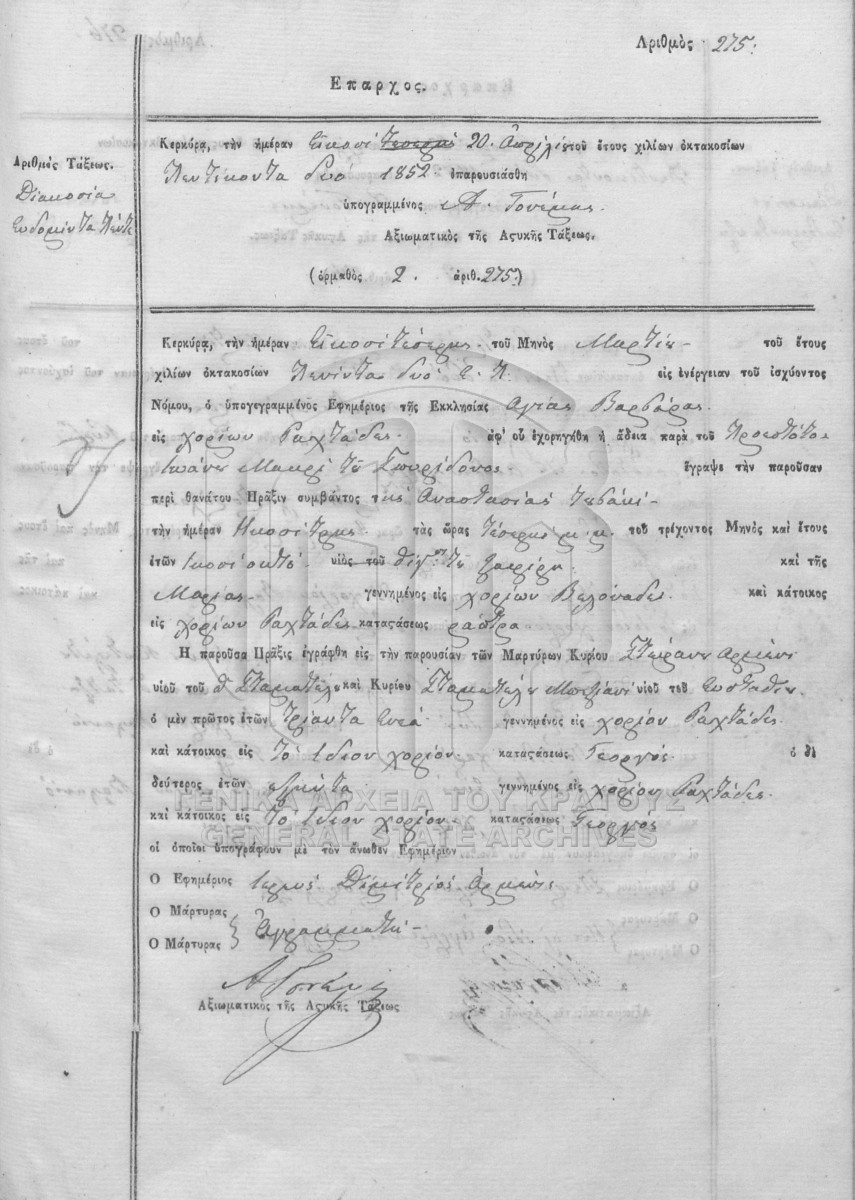 Ἀριθμὸς 275:
Ἔπαρχος.
Κερκύρᾳ, τὴν ἡμέραν Εικοσι τεσερις 20. Απριλίου τοῦ ἔτους χιλίων ὀκτακοσίων
Πεντικοντα δυό 1852 ἐπαρουσιάσθη
ὑπογραμμένος Α. Γονέμης.
Ἀξιωματικὸς τῆς Ἀςυκῆς Τάξεως.
(ὁρμαθὸς 2. ἀριθ. 275.)
Ἀριθμὸς Τάξεως.
Διακοσία
Ευδομίντα Πέντε
Κερκύρᾳ, τὴν ἡμέραν Εικοσι τέσερις τοῦ Μηνὸς Μαρτίου τοῦ ἔτους
χιλίων ὀκτακοσίων Πενίντα δυό Ε. Π. εἰς ἐνέργειαν τοῦ ἰσχύοντος
Νόμου, ὁ ὑπογεγραμμένος Ἐφημέριος τῆς Ἐκκλησίας Αγίας Βαρβάρας
εἰς χορίων Ραχτάδες ἀφ' οὗ ἐχορηγήθη ἡ ἄδεια παρὰ τοῦ Προεστότος
Ιωάνου Μακρί του Σπυρίδονος ἔγραψε τὴν παροῦσαν
περὶ θανάτου Πρᾶξιν συμβάντος της Αναστασίας
τὴν ἡμέραν τὰς ὥρας τέσερις μ.μ. τοῦ τρέχοντος Μηνὸς καὶ ἔτους
ἐτῶν ικοσι οκτό υἱὸς τοῦ του Ζαφίρη καὶ τῆς
Μαρίας γεννημένος εἰς χορίων Βελόναδες καὶ κάτοικος
εἰς χορίων Ραχτάδες καταςάσεως ράπτρα
Ἡ παροῦσα Πρᾶξις ἐγράφθη εἰς τὴν παρουσίαν τῶν Μαρτύρων Κυρίου Στεφάνου Αρμένι
υἱοῦ τοῦ Σταματέλου καὶ Κυρίου Σταματέλου υἱοῦ τοῦ Ευσταθίου
ὁ μὲν πρῶτος ἐτῶν Τριαντα Ενεά γεννημένος εἰς χορίον Ραχτάδες
καὶ κάτοικος εἰς το ίδιον χορίον καταςάσεως Γεοργός ὁ δὲ
δεύτερος ἐτῶν γεννημένος εἰς χορίον Ραχτάδες.
καὶ κάτοικος εἰς το ίδιον χορίον καταςάσεως Γεοργός
οἱ ὁποῖοι ὑπογράφουν με τὸν ἄνωθεν Ἐφημέριον
Ὁ Ἐφημέριος Ιερεύς Διμίτριος Αρμένις
Ὁ Μάρτυρας
Ὁ Μάρτυρας } Αγραμματοι
Α Γονέμης
Ἀξιωματικὸς τῆς Ἀςυκῆς Τάξεως
ΓΕΝΙΚΑ ΑΡΧΕΙΑ ΤΟΥ ΚΡΑΤΟΥΣ
GENERAL STATE ARCHIVES